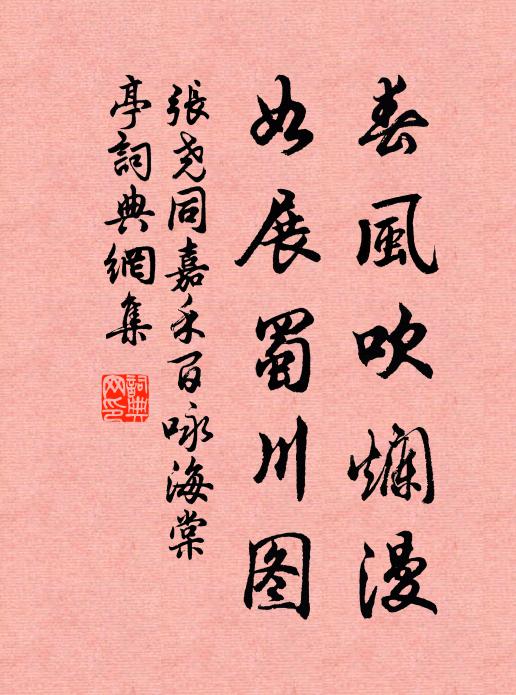 春風吹爛漫
如展蜀川图
張尭同嘉禾百咏海棠
亭詞典網集
詞典網印